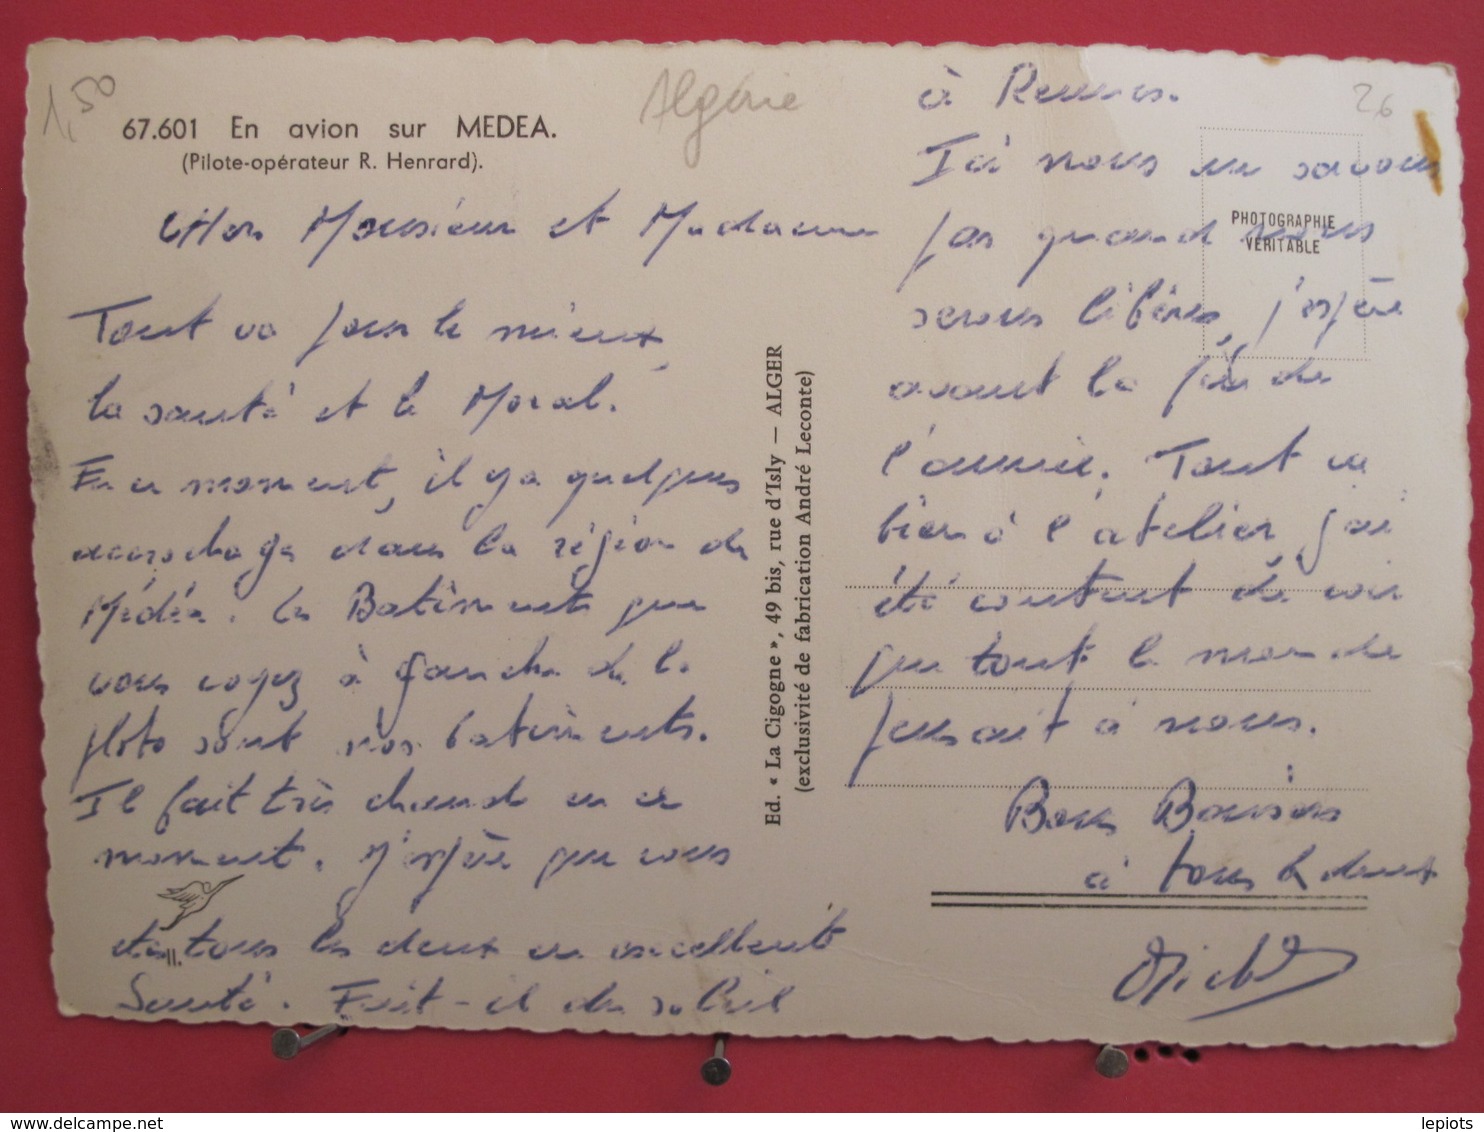 1,50
Algérie
26
67.601 En avion sur MEDEA.
(Pilote-opérateur R. Henrard).
Chers Monsieur et Madame
Tout va pour le mieux,
la santé et le Moral.
En ce moment, il y a quelques
accrochage dans la région de
Médéa. Les Batiments que
vous voyez à gauche de la
photo sont nos batiments.
Il fait très chaud en ce
moment. J'espère que vous
etes tous les deux en excellente
Santé. Fait-il du soleil
Ed. « La Cigogne », 49 bis, rue d'Isly — ALGER
(exclusivité de fabrication André Leconte)
PHOTOGRAPHIE
VÉRITABLE
à Rennes.
Ici nous ne savons
pas quand nous
serons libérés, j'espère
avant la fin de
l'année. Tout va
bien à l'atelier, j'ai
été content de voir
que tout le monde
pensait à nous.
Bons Baisers
à tous les deux
Michel
lepiots
www.delcampe.net